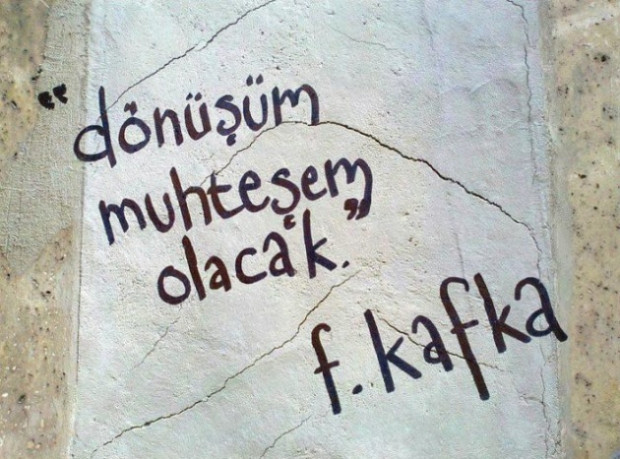 "dönüşüm
muhteşem
olacak."
f. kafka